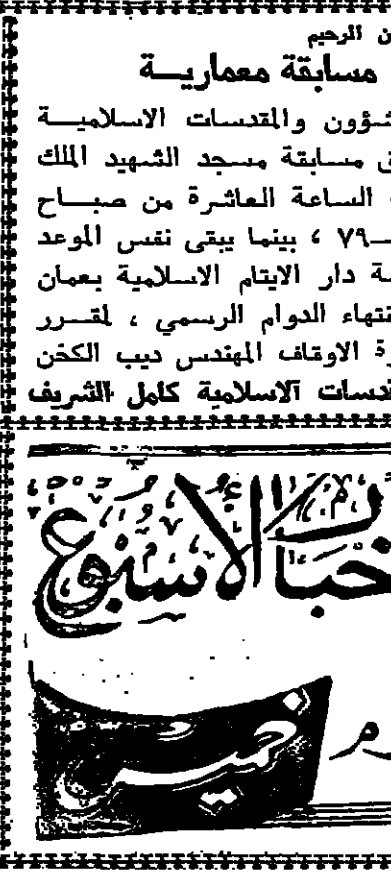 ن الرحيم
مسابقة معماريـــة
شؤون والمقدسات الاسلاميـــة
ق مسابقة مسجد الشهيد الملك
الساعة العاشرة من صبـــاح
ـــ٧٩ ، بينما يبقى نفس الموعد
ـة دار الايتام الاسلامية بعمان
نتهاء الدوام الرسمي ، لمقـــرر
رة الاوقاف المهندس ديب الكخن
دسات الاسلامية كامل الشريف
خبار الأسبوع